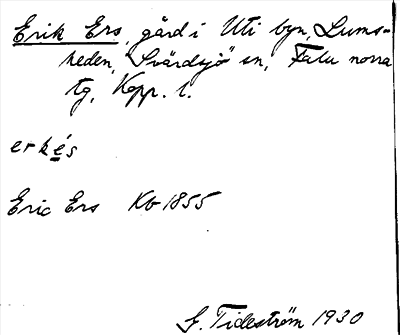 Erik Ers, gård i Uti byn, Lums-
heden, Svärdsjö sn, Falu norra
tg, Kopp. l.
erkés
Eric Ers Kb 1855
G. Tideström 1930